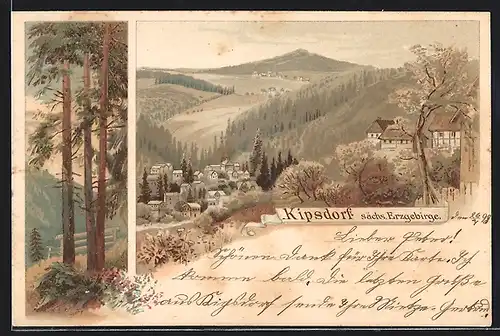 Kipsdorf Sächs. Erzgebirge.
Lieber Peter!
Schönen Dank für Ihre Karte. Ich
komme bald. Die letzten Grüße
aus Kipsdorf sende Ihnen